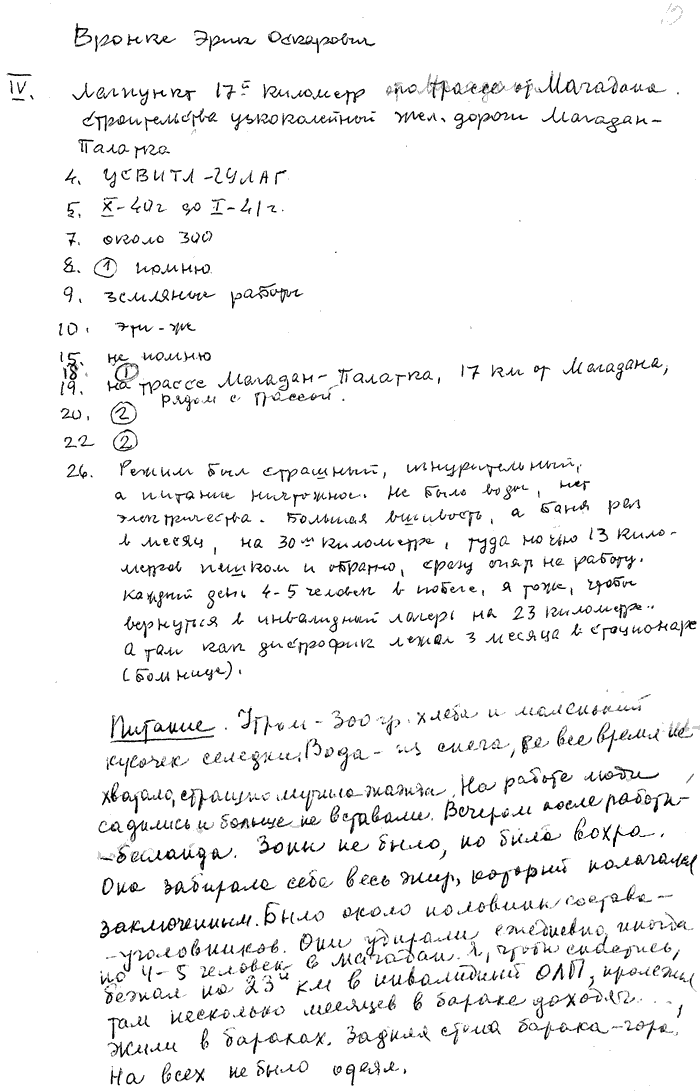 Вронке Эрик Оскарович
IV. Лагпункт 17й километр по трассе от Магадана.
строительства узкоколейный жел. дороги Магадан-
Палатка
4. УСВИТЛ-ГУЛАГ
5. X-40г до I-41г.
7. около 300
8. 1 помню
9. земляные работы
10. эти-же
15. не помню
18. 1
19. на трассе Магадан-Палатка, 17 км от Магадана,
рядом с трассой.
20. 2
22 2
26. Режим был страшный, изнурительный,
а питание ничтожное. Не было воды, нет
электричества. Большая вшивость, а баня раз
в месяц, на 30м километре, туда ночью 13 кило-
метров пешком и обратно, сразу опять на работу.
Каждый день 4-5 человек в побеге, я тоже, чтобы
вернуться в инвалидный лагерь на 23 километре..
А там как дистрофик лежал 3 месяца в стационаре
(больнице).
Питание. Утром - 300 гр. хлеба и маленький
кусочек селедки. Вода - из снега, ее все время не
хватало, страшно мучила жажда. На работе люди
садились и больше не вставали. Вечером после работы-
-баланда. Зоны не было, но была вохра.
Она забирала себе весь жир, который полагался
заключенным. Было около половины состава-
-уголовников. Они удирали ежедневно, иногда
по 4-5 человек в Магадан. Я, чтобы спастись,
бежал на 23й км в инвалидный ОЛП, пролежал
там несколько месяцев в бараке доходяг...,
Жили в бараках. Задняя стена барака-гора.
На всех не было одеял.